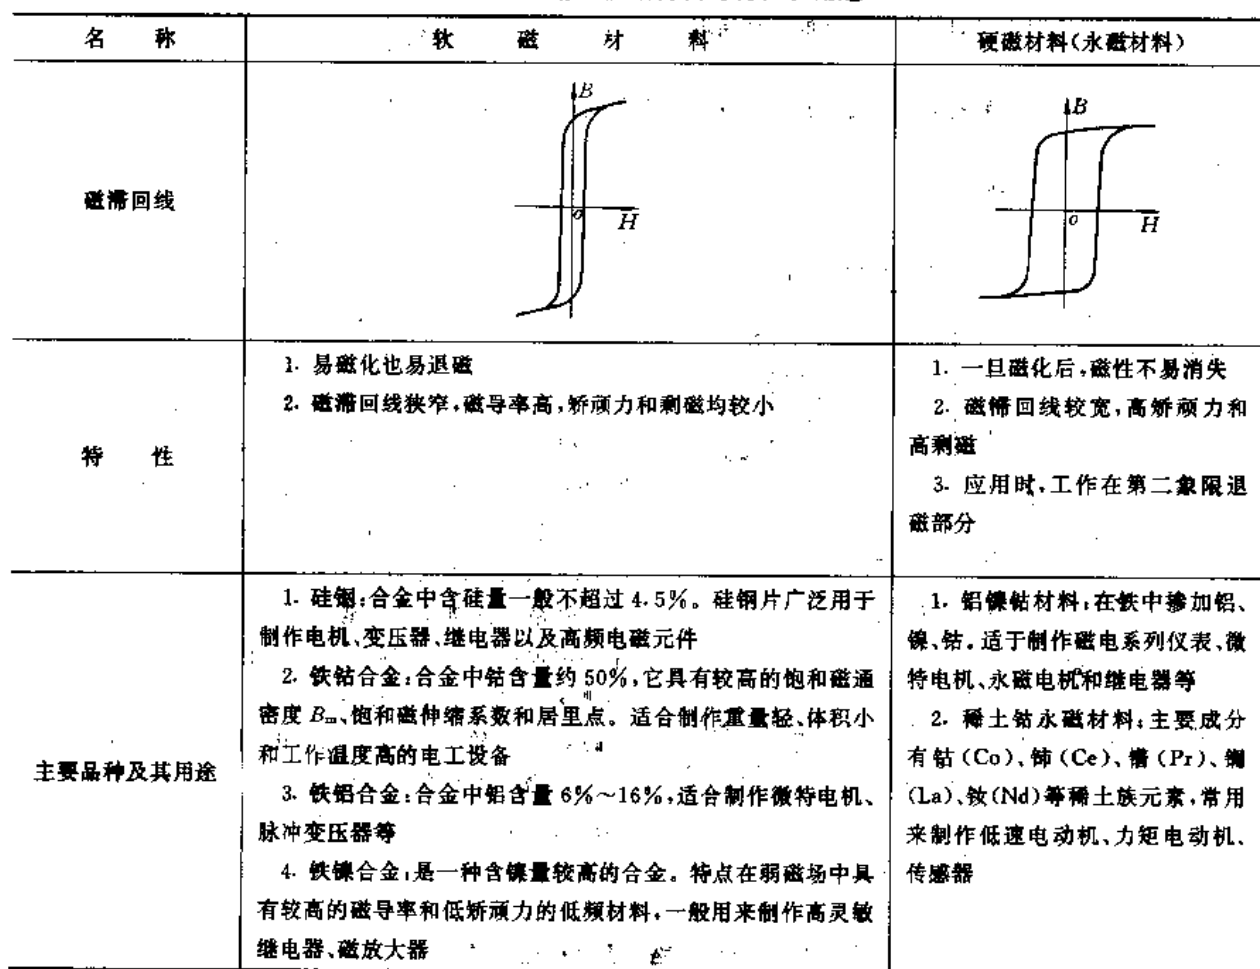 名 称
软 磁 材 料
硬磁材料(永磁材料)
磁滞回线
B
H
o
B
H
o
特 性
1. 易磁化也易退磁
2. 磁滞回线狭窄,磁导率高,矫顽力和剩磁均较小
1. 一旦磁化后,磁性不易消失
2. 磁滞回线较宽,高矫顽力和
高剩磁
3. 应用时,工作在第二象限退
磁部分
主要品种及其用途
1. 硅钢:合金中含硅量一般不超过 4.5%。硅钢片广泛用于
制作电机、变压器、继电器以及高频电磁元件
2. 铁钴合金:合金中钴含量约 50%,它具有较高的饱和磁通
密度 Bm、饱和磁伸缩系数和居里点。适合制作重量轻、体积小
和工作温度高的电工设备
3. 铁铝合金:合金中铝含量 6%~16%,适合制作微特电机、
脉冲变压器等
4. 铁镍合金:是一种含镍量较高的合金。特点在弱磁场中具
有较高的磁导率和低矫顽力的低频材料,一般用来制作高灵敏
继电器、磁放大器
1. 铝镍钴材料:在铁中掺加铝、
镍、钴。适于制作磁电系列仪表、微
特电机、永磁电机和继电器等
2. 稀土钴永磁材料:主要成分
有钴(Co)、铈(Ce)、镨(Pr)、镧
(La)、钕(Nd)等稀土族元素,常用
来制作低速电动机、力矩电动机、
传感器